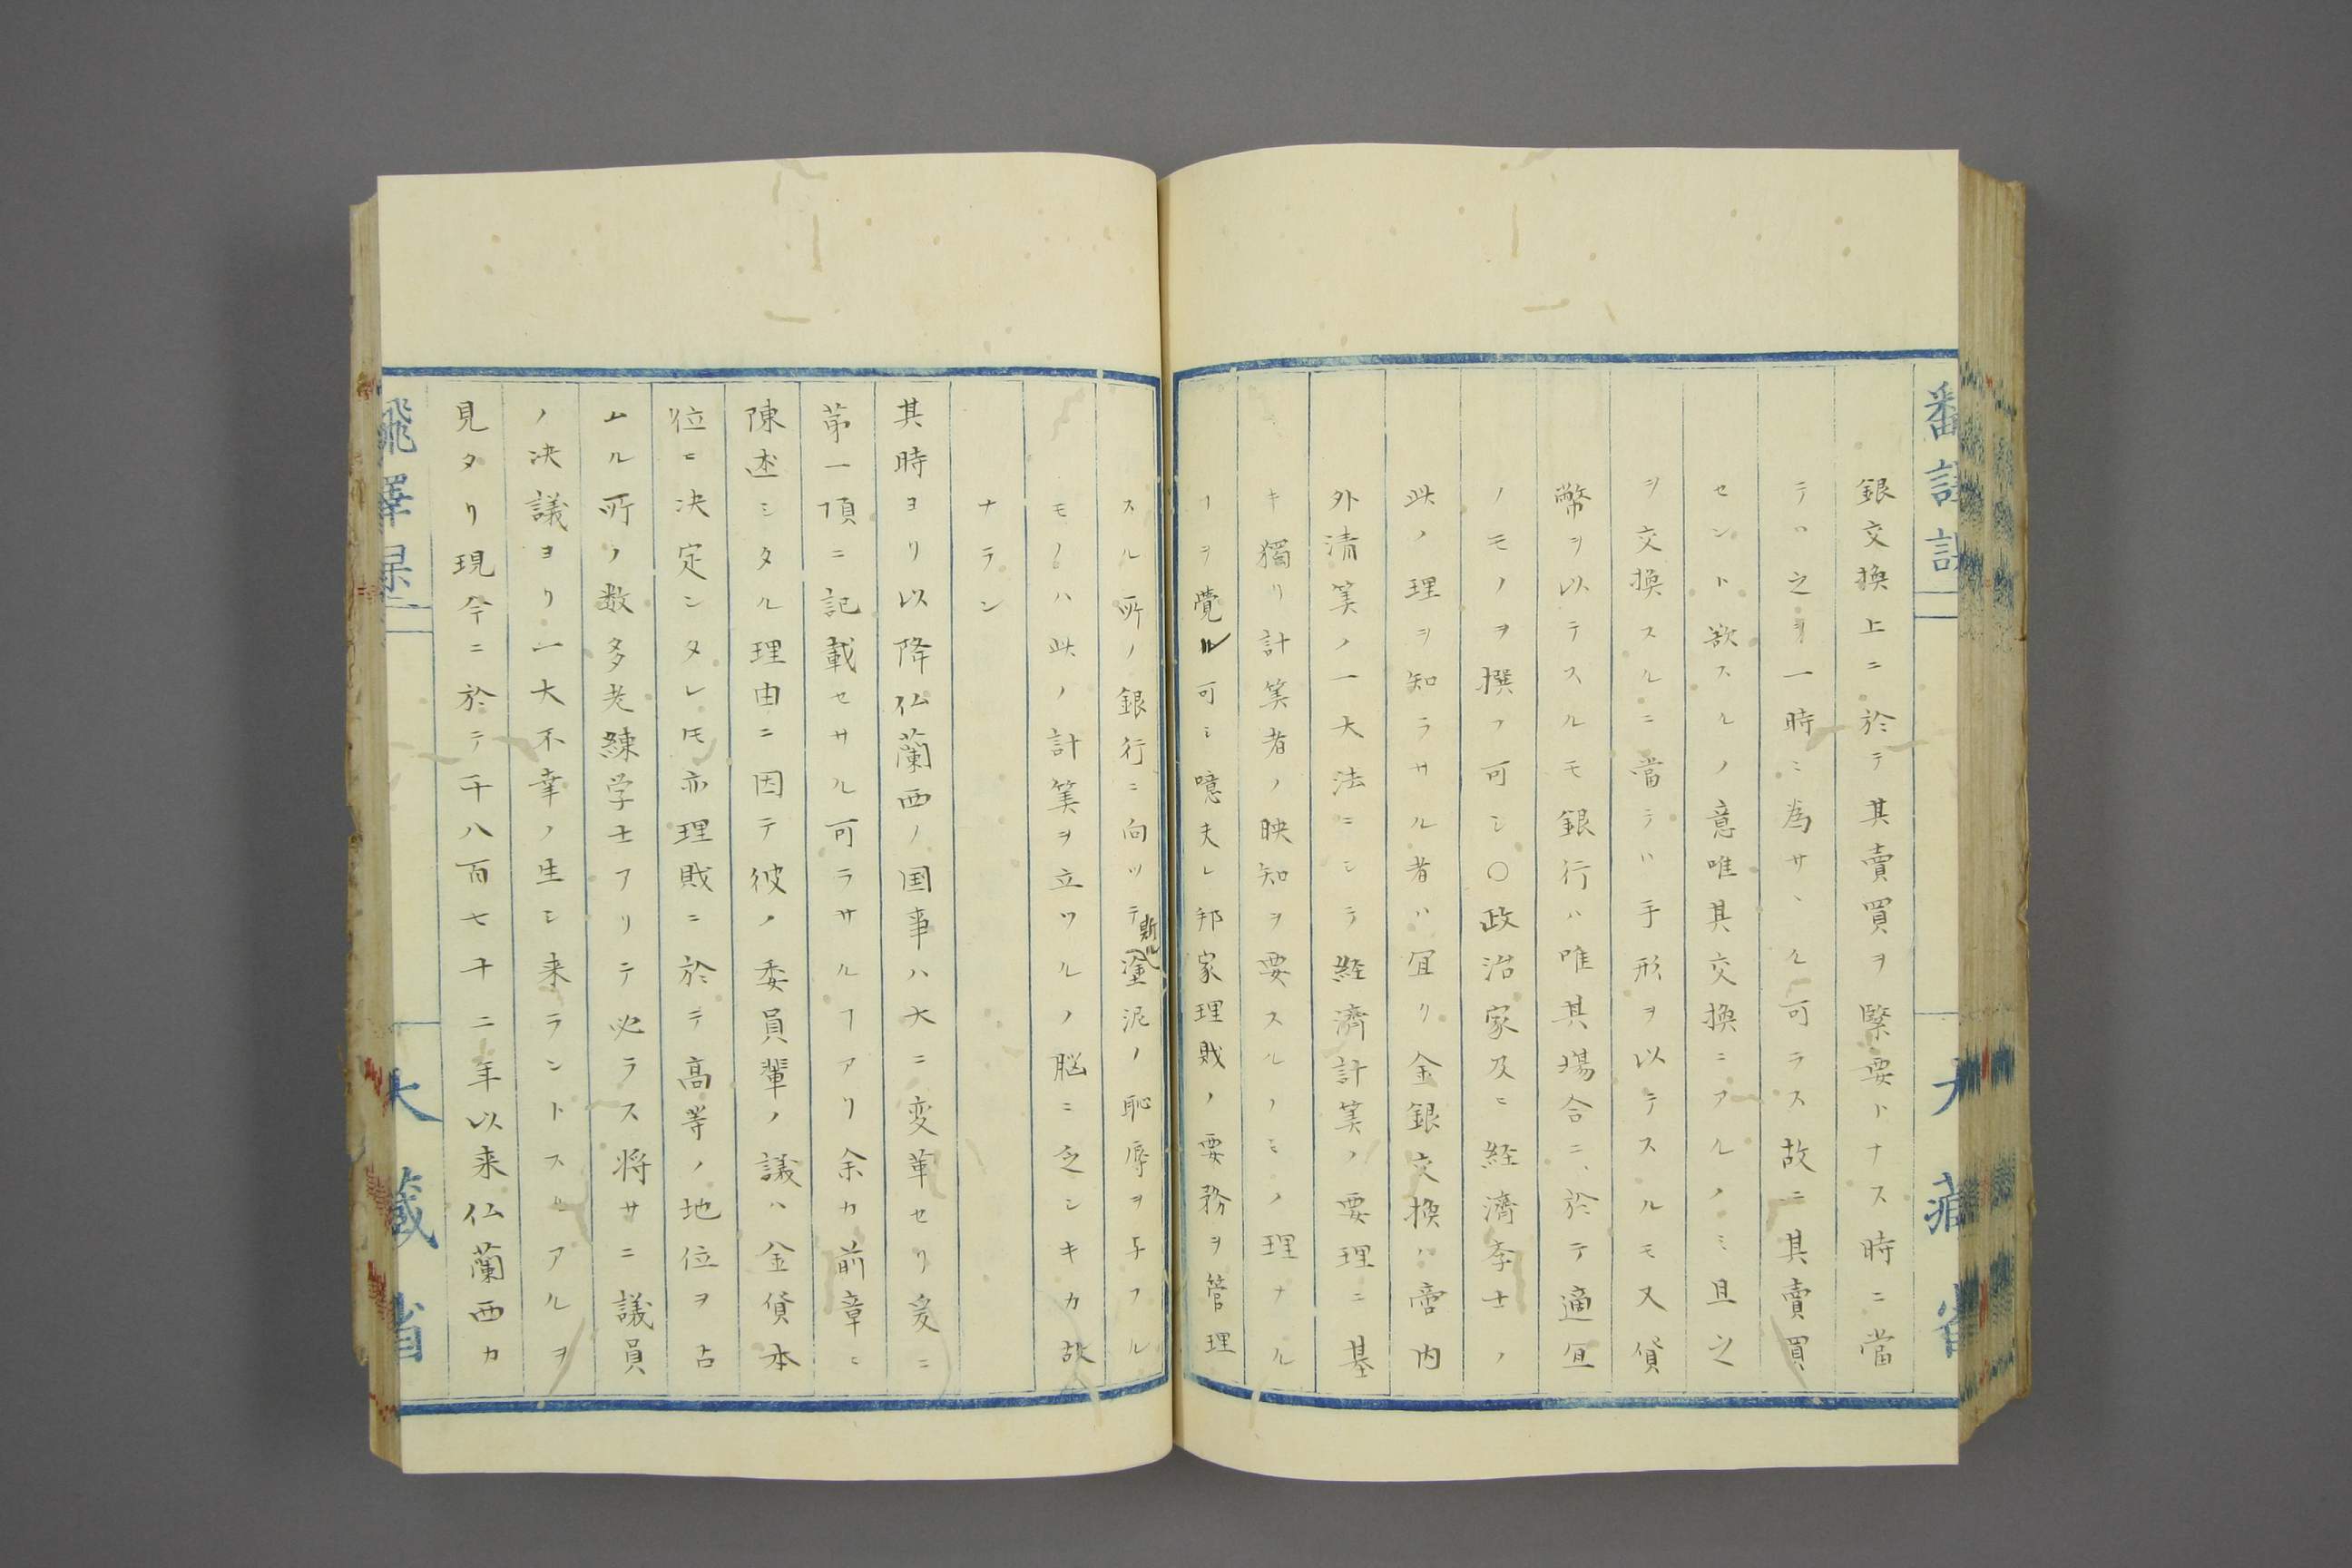 銀交換上ニ於テ其賣買ヲ緊要トナス時ニ當
テハ之ヲ一時ニ為サヽル可ラス故ニ其賣買
セント欲スルノ意唯其交換ニアルノミ且之
ヲ交換スルニ當テハ手形ヲ以テスルモ又貨
幣ヲ以テスルモ銀行ハ唯其場合ニ於テ適宜
ノモノヲ撰フ可シ○政治家及ニ経濟李士ノ
此ノ理ヲ知ラサル者ハ冝リ金銀交換ハ啻内
外清筭ノ一大法ニシテ経濟計筭ノ要理ニ基
キ獨リ計筭者ノ映知ヲ要スルノミノ理ナル
ヿヲ覺ル可ミ噫夫レ邦家理財ノ要務ヲ管理
スル所ノ銀行ニ向ツテ斯ル塗泥ノ恥辱ヲ与フル
モノハ此ノ計筭ヲ立ツルノ脳ニ乏シキカ故
ナラン
其時ヨリ以降仏蘭西ノ国事ハ大ニ変革セリ爰ニ
苐一頂ニ記載セサル可ラサルヿアリ余カ前章ニ
陳述シタル理由ニ因テ彼ノ委員輩ノ議ハ金貨本
位ニ决定シタレ𪜈亦理財ニ於テ高等ノ地位ヲ占
ムル所ノ数多老練学士アリテ必ラス将サニ議員
ノ决議ヨリ一大不幸ノ生シ来ラントスルアルヲ
見タリ現今ニ於テ千八百七十二年以来仏蘭西カ
大藏省
大藏省